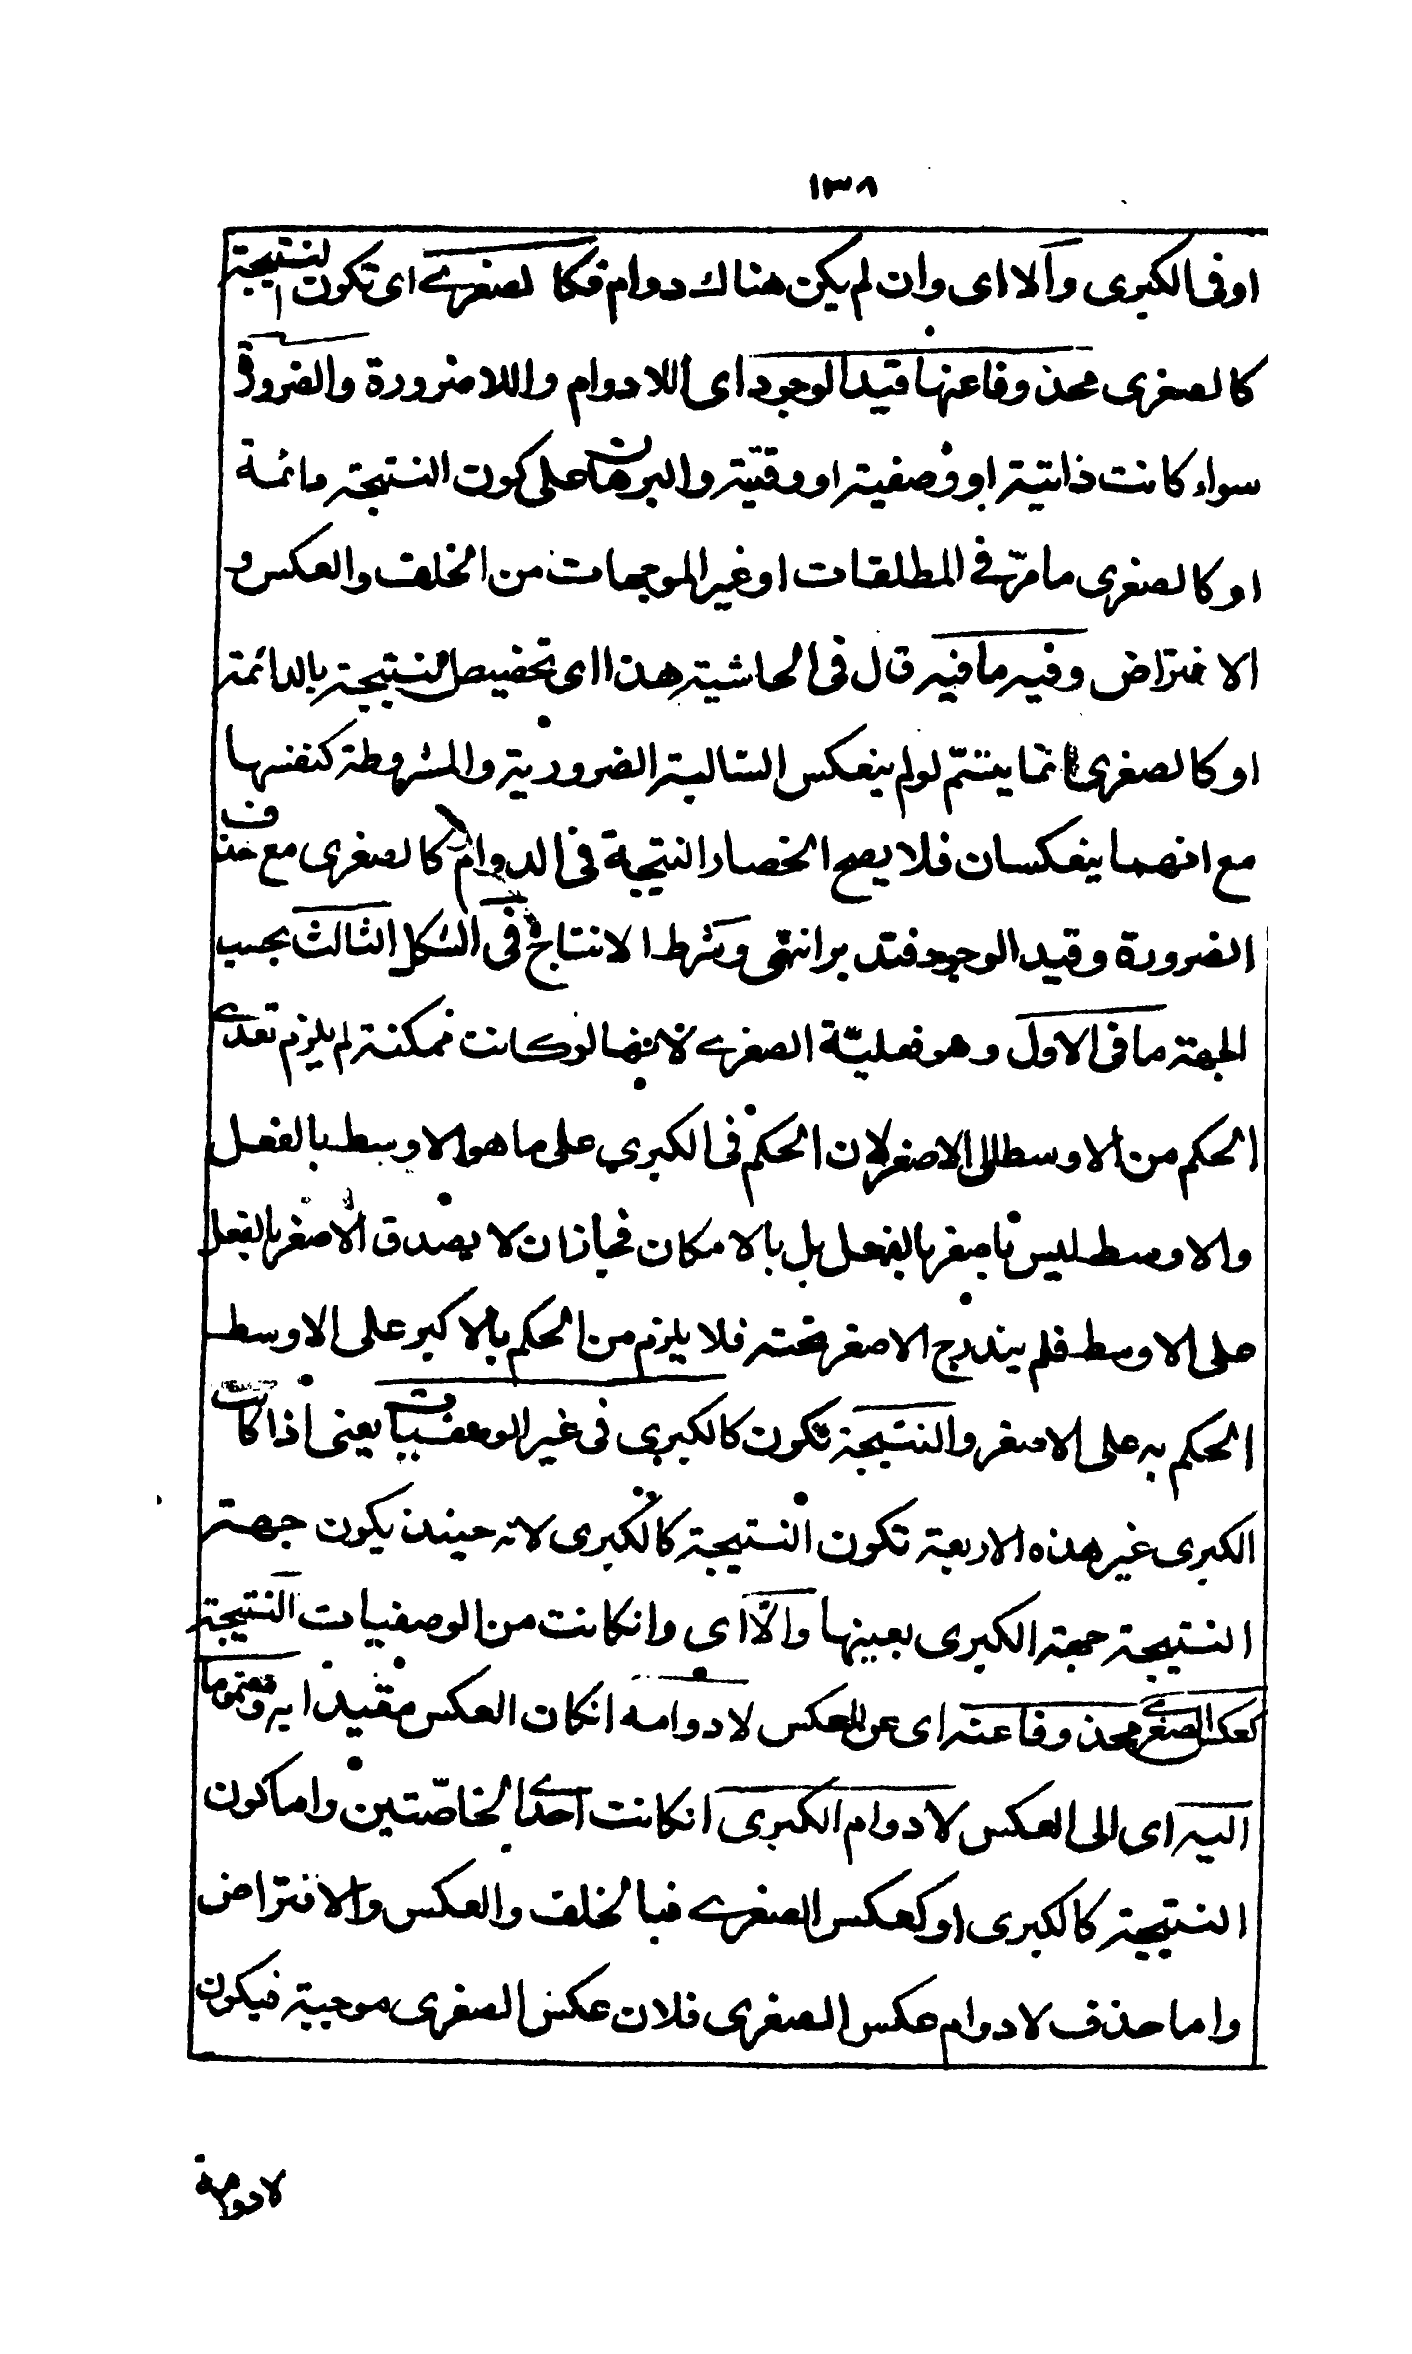 ١٣٨
او فى الكبرى والا اى وان لم يكن هناك دوام فكالصغرى اى تكون النتيجة
كالصغرى محذوفا عنها قيد الوجود اى اللادوام واللاضرورة والضرورة
سواء كانت ذاتية او وصفية او وقتية والبرهان على كون النتيجة دائمة
او كالصغرى ما مرّ فى المطلقات او غير الموجهات من الخلف والعكس و
الافتراض وفيه ما فيه قال فى الحاشية هذا اى تخصيص النتيجة بالدائمة
او كالصغرى انما يتم لو لم ينعكس السالبة الضرورية والمشروطة كنفسها
مع انهما ينعكسان فلا يصح انحصار النتيجة فى الدوام كالصغرى مع حذف
الضرورة وقيد الوجود فتدبر انتهى وشرط الانتاج فى الشكل الثالث بحسب
الجهة ما فى الاول وهو فعليّة الصغرى لانها لو كانت ممكنة لم يلزم تعدى
الحكم من الاوسط الى الاصغر لان الحكم فى الكبرى على ما هو الاوسط بالفعل
والاوسط ليس باصغر بالفعل بل بالامكان فجاز ان لا يصدق الاصغر بالفعل
على الاوسط فلم يندرج الاصغر تحته فلا يلزم من الحكم بالاكبر على الاوسط
الحكم به على الاصغر والنتيجة تكون كالكبرى فى غير الوصفيات يعنى اذا كانت
الكبرى غير هذه الاربعة تكون النتيجة كالكبرى لانه حينئذ يكون جهة
النتيجة جهة الكبرى بعينها والّا اى وانكانت من الوصفيات النتيجة
كعكس الصغرى محذوفا عنه اى عن العكس لادوامه انكان العكس مقيدا به ومضموما
اليه اى الى العكس لادوام الكبرى انكانت احدى الخاصّتين واما كون
النتيجة كالكبرى او كعكس الصغرى فبالخلف والعكس والافتراض
واما حذف لادوام عكس الصغرى فلان عكس الصغرى موجبة فيكون
لادوامه